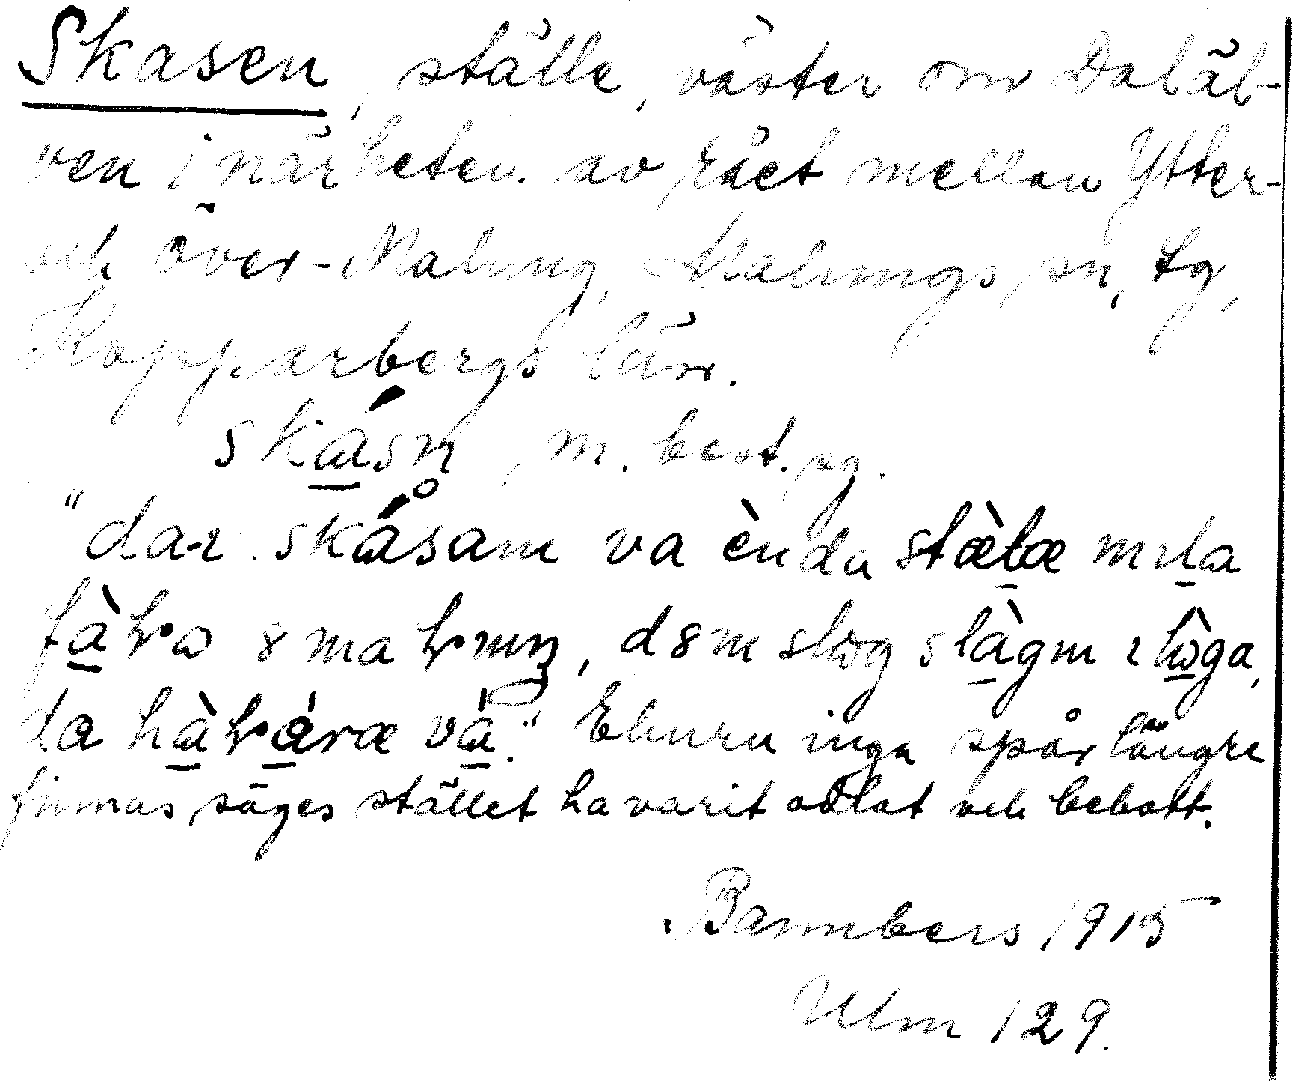 Skasen, ställe, väster om Daläl-
ven i närheten av rået mellan Ytter-
och Över-Malung, Malungs sn, tg,
Kopparbergs län.
skásn, m. best. sg.
"da-r skåsam va ènda stætæ mıla
da hàkáræ và." Ehuru inga spår längre
finnas säges stället ha varit odlat och bebott.
Bannbers 1915
Ulm 129.